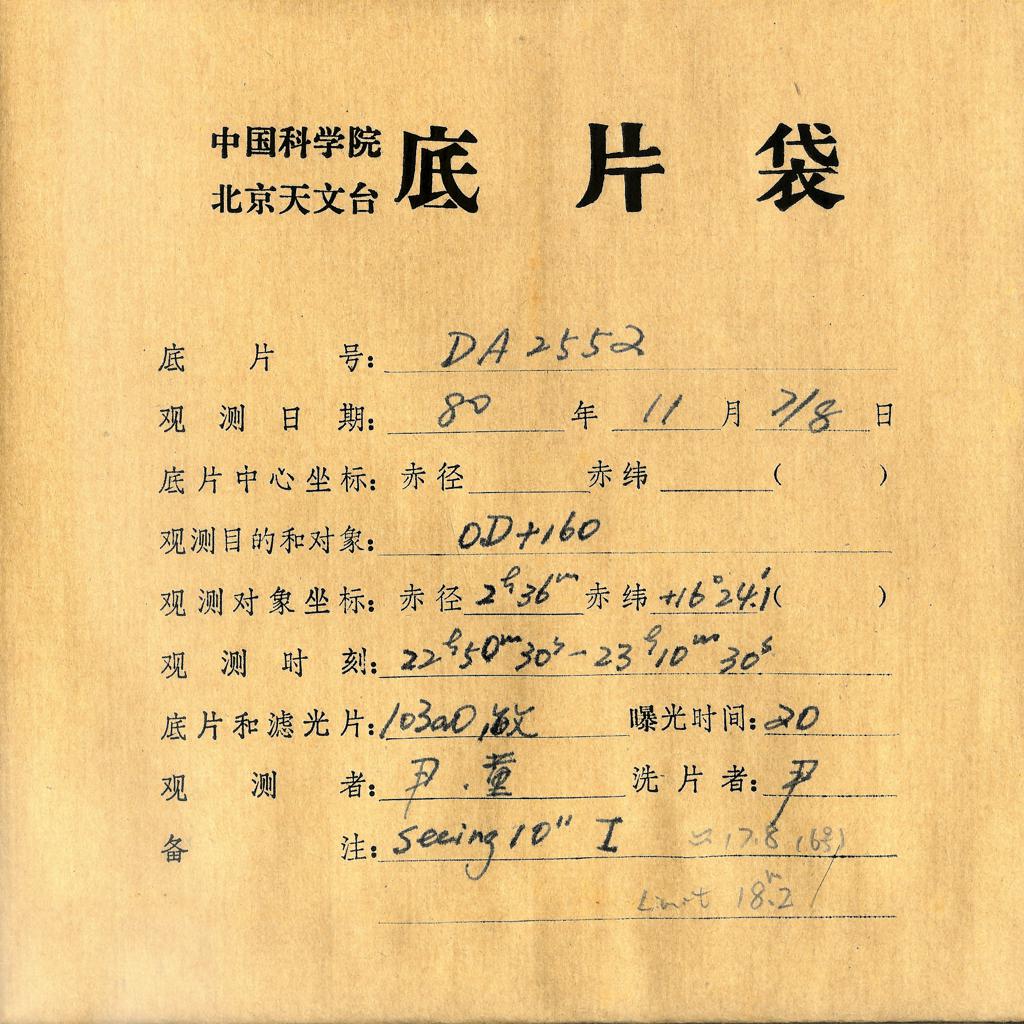 中国科学院
北京天文台
底片袋
底片号: DA 2552
观测日期: 80 年 11 月 7/8 日
底片中心坐标: 赤径 赤纬 ( )
观测目的和对象: OD+160
观测对象坐标: 赤径 2ʰ36ᵐ 赤纬 +16°24.1′ ( )
观测时刻: 22ʰ50ᵐ30ˢ-23ʰ10ᵐ30ˢ
底片和滤光片: 103aO,敏 曝光时间: 20
观测者: 尹.董 洗片者: 尹
备注: Seeing 10″ I 17.8 (6号)
Limit 18ᵐ.2